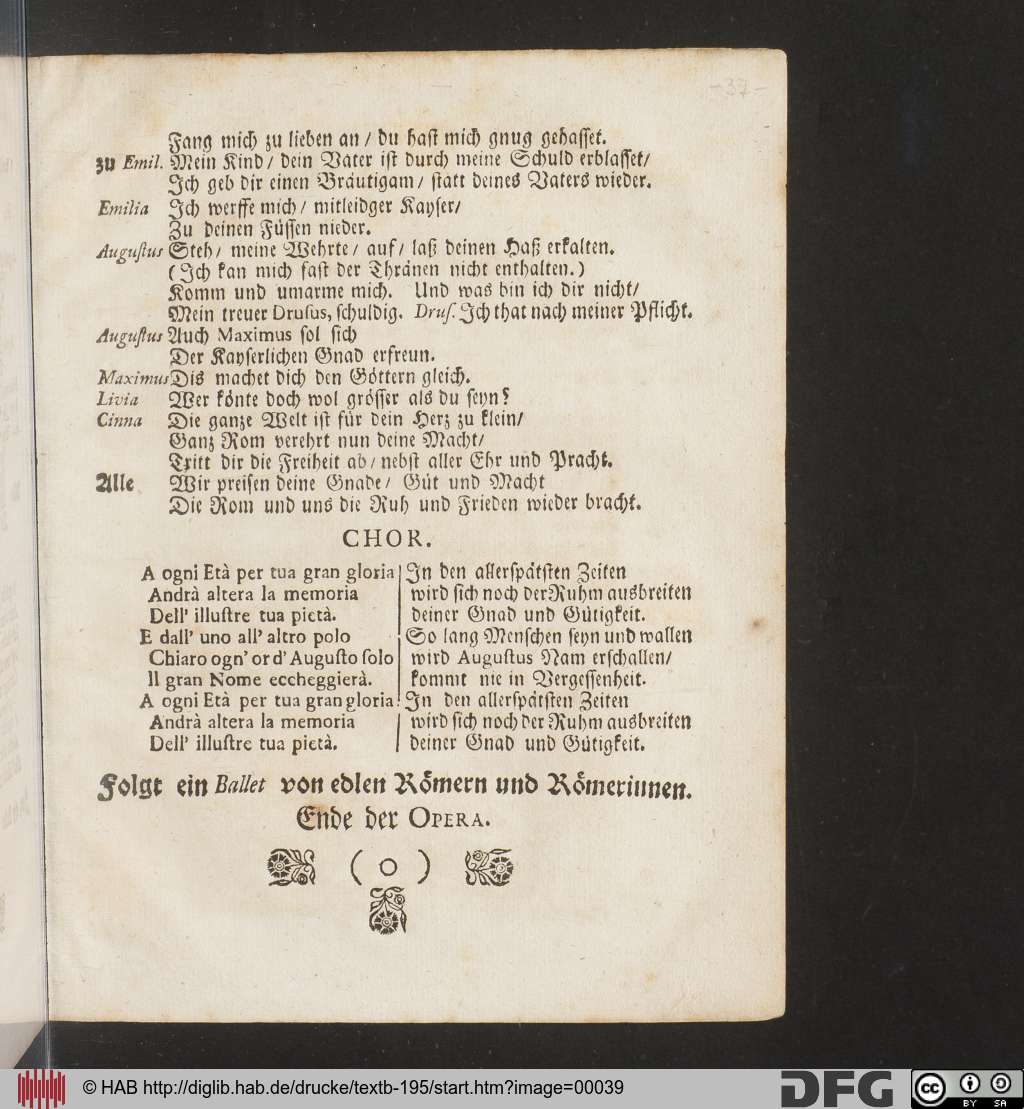 -37-
Fang mich zu lieben an / du hast mich gnug gehasset.
zu Emil. Mein Kind / dein Vater ist durch meine Schuld erblasset /
Ich geb dir einen Bräutigam / statt deines Vaters wieder.
Emilia Ich werffe mich / mitleidger Kayser /
Zu deinen Füssen nieder.
Augustus Steh / meine Wehrte / auf / laß deinen Haß erkalten.
(Ich kan mich fast der Thränen nicht enthalten.)
Komm und umarme mich. Und was bin ich dir nicht /
Mein treuer Drusus, schuldig. Drus. Ich that nach meiner Pflicht.
Augustus Auch Maximus sol sich
Der Kayserlichen Gnad erfreun.
Maximus Dis machet dich den Göttern gleich.
Livia Wer könte doch wol grösser als du seyn?
Cinna Die ganze Welt ist für dein Herz zu klein /
Ganz Rom verehrt nun deine Macht /
Tritt dir die Freiheit ab / nebst aller Ehr und Pracht.
Alle Wir preisen deine Gnade / Güt und Macht
Die Rom und uns die Ruh und Frieden wieder bracht.
CHOR.
A ogni Età per tua gran gloria
Andrà altera la memoria
Dell' illustre tua pietà.
E dall' uno all' altro polo
Chiaro ogn' or d' Augusto solo
Il gran Nome eccheggierà.
A ogni Età per tua gran gloria
Andrà altera la memoria
Dell' illustre tua pietà.
In den allerspätsten Zeiten
wird sich noch der Ruhm ausbreiten
deiner Gnad und Gütigkeit.
So lang Menschen seyn und wallen
wird Augustus Nam erschallen /
kommt nie in Vergessenheit.
In den allerspätsten Zeiten
wird sich noch der Ruhm ausbreiten
deiner Gnad und Gütigkeit.
Folgt ein Ballet von edlen Römern und Römerinnen.
Ende der OPERA.
( o )
© HAB http://diglib.hab.de/drucke/textb-195/start.htm?image=00039
DFG
cc BY SA